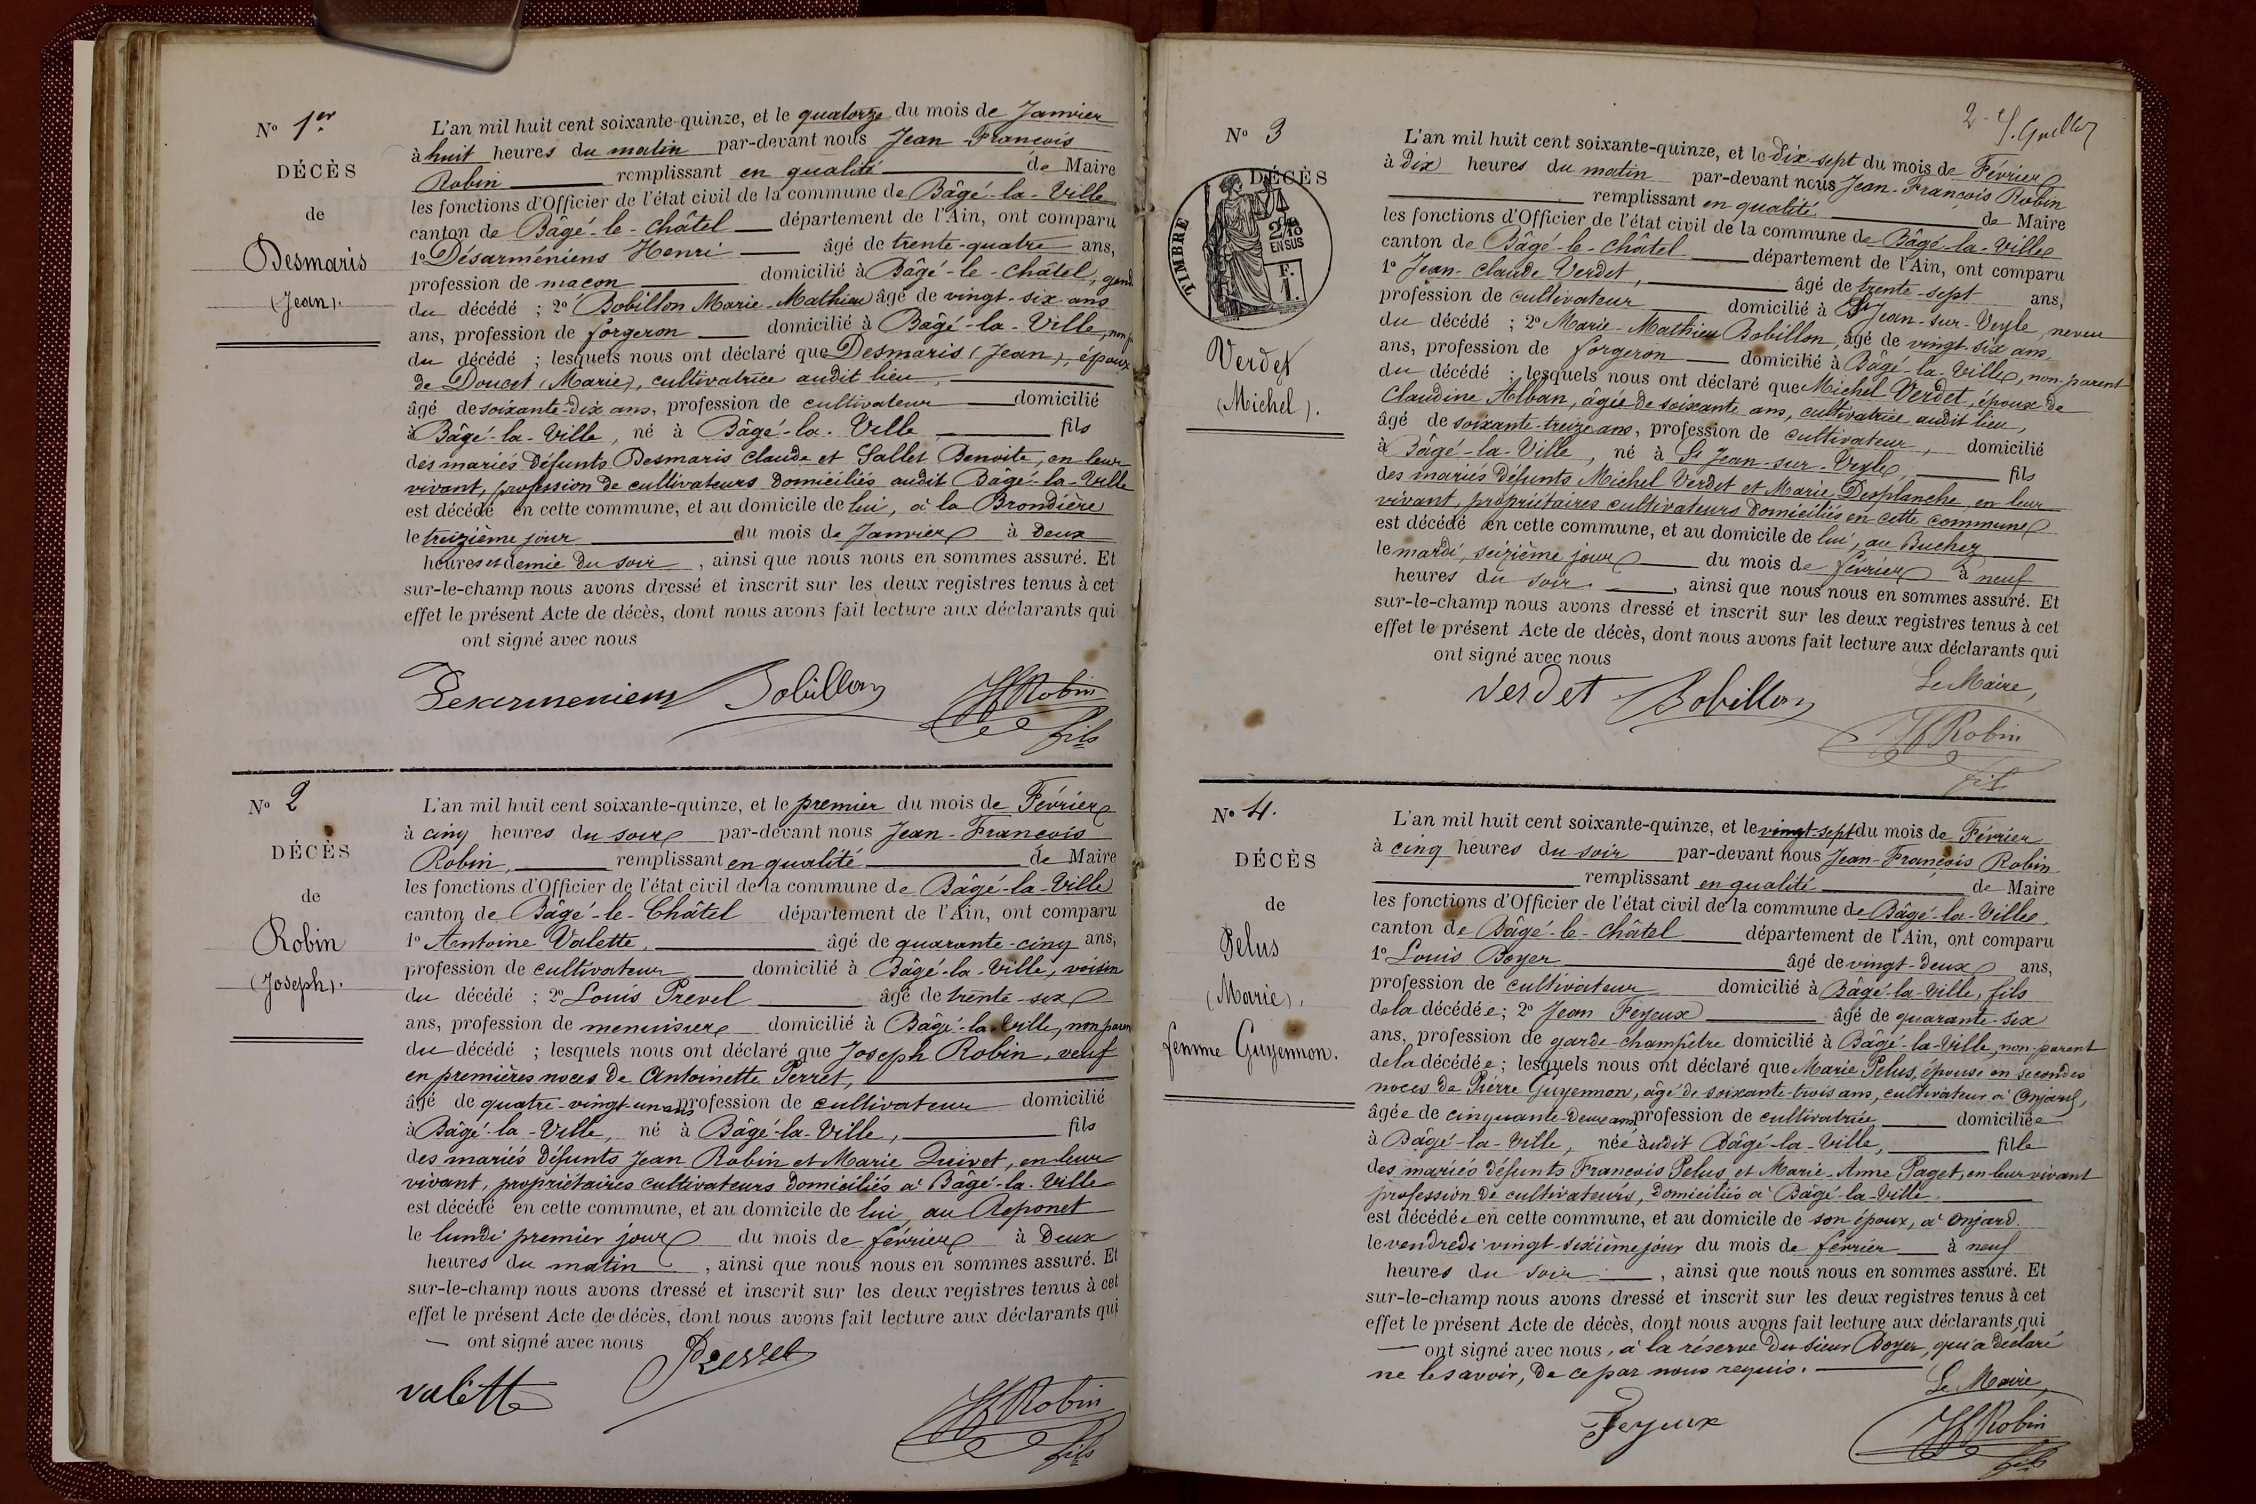 N° 1er
DÉCÈS
de
Desmaris
(Jean).
L'an mil huit cent soixante-quinze, et le quatorze du mois de Janvier
à huit heures du matin par-devant nous Jean-François
Robin remplissant en qualité de Maire
les fonctions d'Officier de l'état civil de la commune de Bâgé-la-Ville
canton de Bâgé-le-Châtel département de l'Ain, ont comparu
1° Désarméniens Henri âgé de trente-quatre ans,
profession de maçon domicilié à Bâgé-le-Châtel,
du décédé ; 2° Bobillon Marie-Mathieu âgé de vingt-six ans
ans, profession de forgeron domicilié à Bâgé-la-Ville,
du décédé ; lesquels nous ont déclaré que Desmaris (Jean), époux
de Doucet (Marie), cultivatrice audit lieu,
âgé de soixante-dix ans, profession de cultivateur domicilié
à Bâgé-la-Ville, né à Bâgé-la-Ville fils
des mariés défunts Desmaris Claude et Sallet Benoite, en leur
vivant, profession de cultivateurs domiciliés audit Bâgé-la-Ville
est décédé en cette commune, et au domicile de lui, à la Brondière
le treizième jour du mois de Janvier à deux
heures et demie du soir, ainsi que nous nous en sommes assuré. Et
sur-le-champ nous avons dressé et inscrit sur les deux registres tenus à cet
effet le présent Acte de décès, dont nous avons fait lecture aux déclarants qui
ont signé avec nous
Desarmeniens Bobillon JfRobin
fils
N° 2
DÉCÈS
de
Robin
(Joseph).
L'an mil huit cent soixante-quinze, et le premier du mois de Février
à cinq heures du soir par-devant nous Jean-François
Robin, remplissant en qualité de Maire
les fonctions d'Officier de l'état civil de la commune de Bâgé-la-Ville
canton de Bâgé-le-Châtel département de l'Ain, ont comparu
1° Antoine Valette, âgé de quarante-cinq ans,
profession de cultivateur domicilié à Bâgé-la-Ville, voisin
du décédé ; 2° Louis Prevel âgé de trente-six
ans, profession de menuisier domicilié à Bâgé-la-Ville, non parent
du décédé ; lesquels nous ont déclaré que Joseph Robin, veuf
en premières noces de Antoinette Perret,
âgé de quatre-vingt-un ans profession de cultivateur domicilié
à Bâgé-la-Ville, né à Bâgé-la-Ville, fils
des mariés défunts Jean Robin et Marie, en leur
vivant, propriétaires cultivateurs domiciliés à Bâgé-la-Ville
est décédé en cette commune, et au domicile de lui, au Reponet
le lundi premier jour du mois de février à deux
heures du matin, ainsi que nous nous en sommes assuré. Et
sur-le-champ nous avons dressé et inscrit sur les deux registres tenus à cet
effet le présent Acte de décès, dont nous avons fait lecture aux déclarants qui
ont signé avec nous
Prevel
valette
JfRobin
fils
2
N° 3
DÉCÈS
TIMBRE
2/10
EN SUS
Verdet
(Michel).
L'an mil huit cent soixante-quinze, et le dix-sept du mois de Février
à dix heures du matin par-devant nous Jean-François Robin
remplissant en qualité de Maire
les fonctions d'Officier de l'état civil de la commune de Bâgé-la-Ville
canton de Bâgé-le-Châtel département de l'Ain, ont comparu
1° Jean-Claude Verdet, âgé de trente-sept ans,
profession de cultivateur domicilié à St Jean-sur-Veyle, neveu
du décédé ; 2° Marie-Mathieu Bobillon, âgé de vingt-six ans,
ans, profession de forgeron domicilié à Bâgé-la-Ville, non-parent
du décédé ; lesquels nous ont déclaré que Michel Verdet, époux de
Claudine Alban, âgée de soixante ans, cultivatrice audit lieu,
âgé de soixante-treize ans, profession de cultivateur, domicilié
à Bâgé-la-Ville, né à St Jean-sur-Veyle, fils
des mariés défunts Michel Verdet et Marie Desplanche, en leur
vivant, propriétaires cultivateurs domiciliés en cette commune
est décédé en cette commune, et au domicile de lui, au Buchez
le mardi, seizième jour du mois de février à neuf
heures du soir, ainsi que nous nous en sommes assuré. Et
sur-le-champ nous avons dressé et inscrit sur les deux registres tenus à cet
effet le présent Acte de décès, dont nous avons fait lecture aux déclarants qui
ont signé avec nous
Le Maire,
Verdet Bobillon
JfRobin
fils
N° 4.
DÉCÈS
de
Pelus
(Marie),
femme Guyennon.
L'an mil huit cent soixante-quinze, et le vingt-sept du mois de Février
à cinq heures du soir par-devant nous Jean-François Robin
remplissant en qualité de Maire
les fonctions d'Officier de l'état civil de la commune de Bâgé-la-Ville,
canton de Bâgé-le-Châtel département de l'Ain, ont comparu
1° Louis Boyer âgé de vingt-deux ans,
profession de cultivateur domicilié à Bâgé-la-Ville, fils
de la décédée ; 2° Jean Feyeux âgé de quarante-six
ans, profession de garde-champêtre domicilié à Bâgé-la-Ville, non-parent
de la décédée ; lesquels nous ont déclaré que Marie Pelus, épouse en secondes
noces de Pierre Guyennon, âgé de soixante-trois ans, cultivateur à Onjard,
âgée de cinquante-deux ans profession de cultivatrice domiciliée
à Bâgé-la-Ville, née audit Bâgé-la-Ville, fille
des mariés défunts François Pelus et Marie-Anne Paget, en leur vivant
profession de cultivateurs, domiciliés à Bâgé-la-Ville.
est décédée en cette commune, et au domicile de son époux, à Onjard.
le vendredi vingt-sixième jour du mois de février à neuf
heures du soir, ainsi que nous nous en sommes assuré. Et
sur-le-champ nous avons dressé et inscrit sur les deux registres tenus à cet
effet le présent Acte de décès, dont nous avons fait lecture aux déclarants qui
ont signé avec nous, à la réserve du sieur Boyer, qui a déclaré
ne le savoir, de ce par nous requis.
Le Maire,
Feyeux
JfRobin
fils